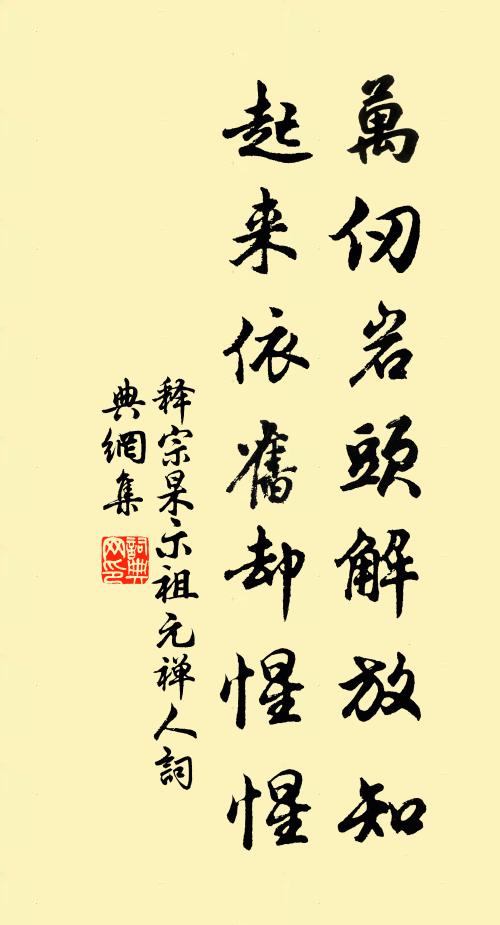 萬仞岩頭解放知
起来依舊却惺惺
释宗杲示祖元禅人詞
典網集
詞典网印